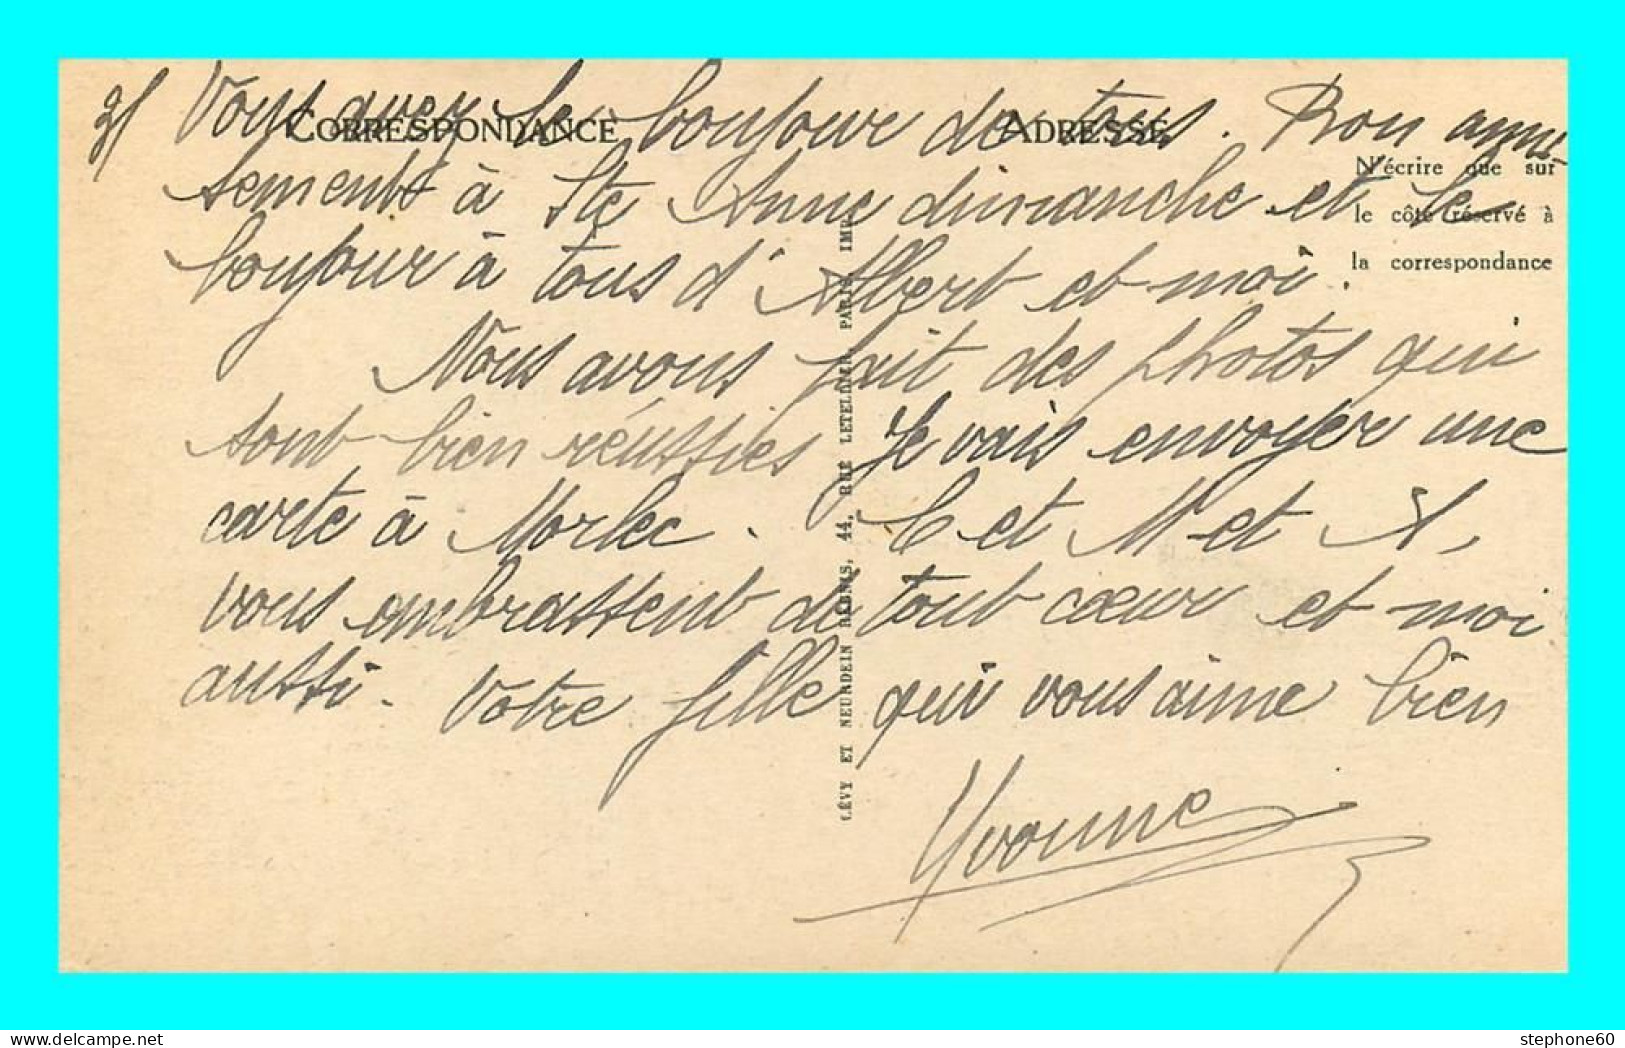 2/ Vous avez le bonjour de tous. Bon amu-
CORRESPONDANCE ADRESSE
N'écrire que sur
le côté réservé à
la correspondance
sements à Ste Anne dimanche et le
bonjour à tous d'Albert et moi.
Nous avons fait des photos qui
sont bien réussies Je vais envoyer une
carte à Morlec. C et M et A,
vous embrassent de tout cœur et moi
aussi. Votre fille qui vous aime bien
Yvonne
LÉVY ET NEURDEIN RÉUNIS, 44, RUE LETELLIER, PARIS, IMP.
stephone60